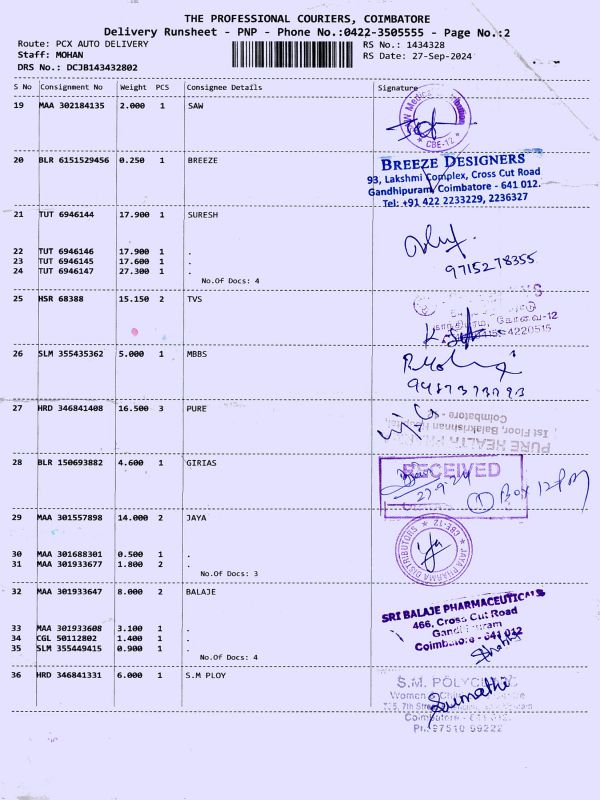 THE PROFESSIONAL COURIERS, COIMBATORE
Delivery Runsheet - PNP - Phone No.:0422-3505555 - Page No.:2
Route: PCX AUTO DELIVERY RS No.: 1434328
Staff: MOHAN RS Date: 27-Sep-2024
DRS No.: DCJB143432802
S No Consignment No Weight PCS Consignee Details Signature
19 MAA 302184135 2.000 1 SAW
CBE-12
20 BLR 6151529456 0.250 1 BREEZE
BREEZE DESIGNERS
93, Lakshmi Complex, Cross Cut Road
Gandhipuram, Coimbatore - 641 012.
Tel: +91 422 2233229, 2236327
21 TUT 6946144 17.900 1 SURESH
22 TUT 6946146 17.900 1 .
23 TUT 6946145 17.600 1 .
24 TUT 6946147 27.300 1 .
No.Of Docs: 4
9715278355
25 HSR 68388 15.150 2 TVS
கோவை-12
4220515
26 SLM 355435362 5.000 1 MBBS
27 HRD 346841408 16.500 3 PURE
PURE HEALTH
1st Floor, Balakrishnan Hospital,
Coimbatore
28 BLR 150693882 4.600 1 GIRIAS
RECEIVED
27-9-24
1 Box 12PM
29 MAA 301557898 14.000 2 JAYA
30 MAA 301688301 0.500 1 .
31 MAA 301933677 1.800 2 .
No.Of Docs: 3
JAYA PHARMA DISTRIBUTORS
32 MAA 301933647 8.000 2 BALAJE
33 MAA 301933608 3.100 1 .
34 CGL 50112802 1.400 1 .
35 SLM 355449415 0.900 1 .
No.Of Docs: 4
SRI BALAJE PHARMACEUTICALS
466, Cross Cut Road
Coimbatore - 641 012
36 HRD 346841331 6.000 1 S.M PLOY
S.M. POLYCLINIC
Sumathi
Ph:97510 99222